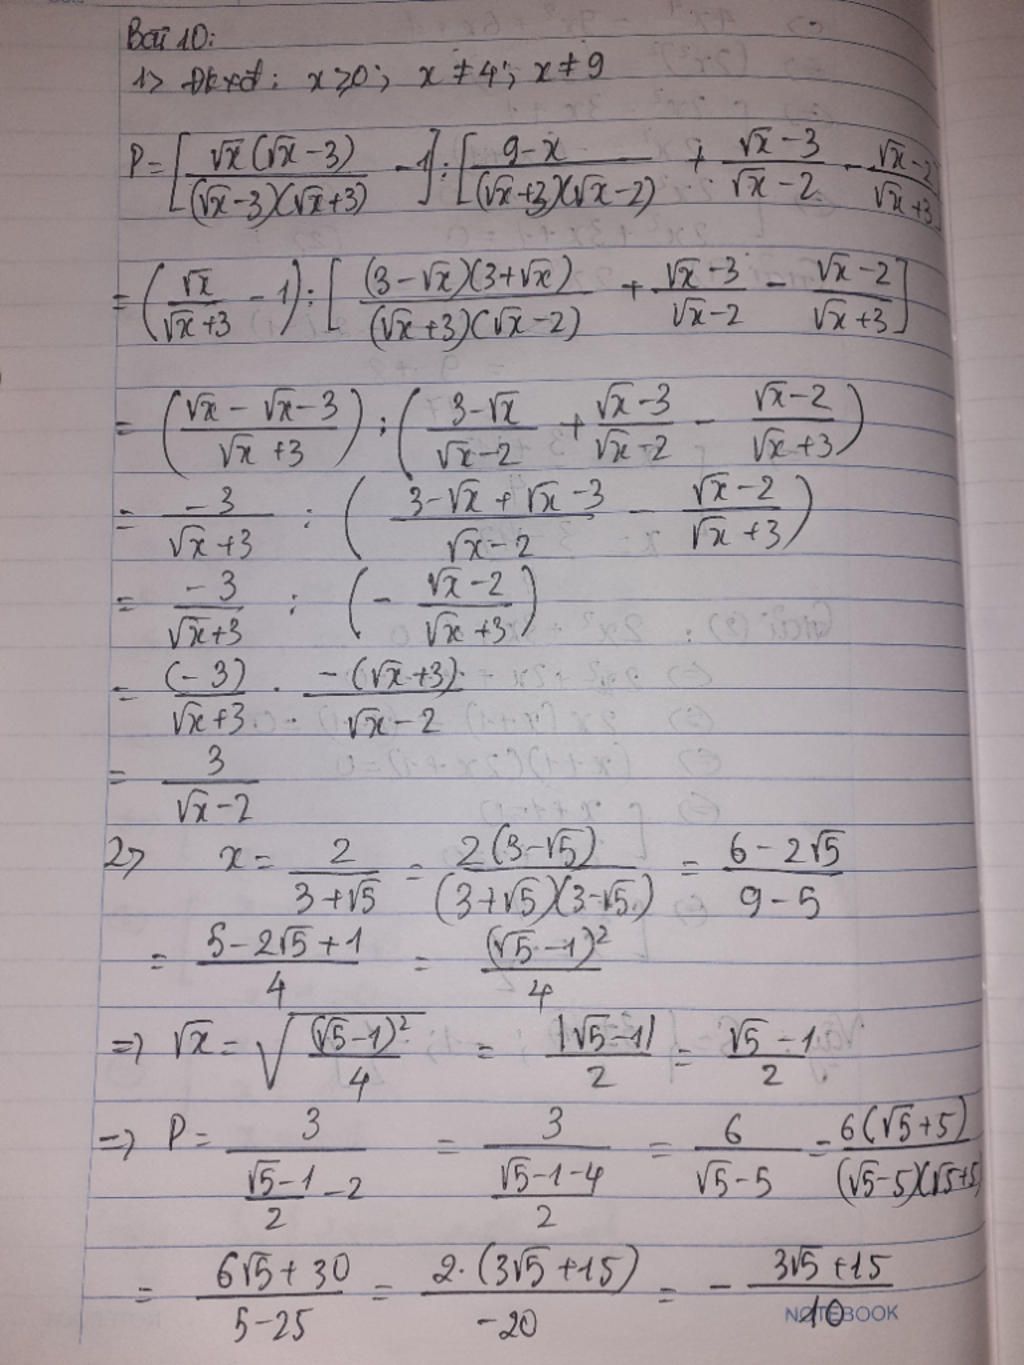 Bài 10:
1> Đkxđ: x ≥ 0; x ≠ 4; x ≠ 9
P = [√x(√x - 3)/((√x - 3)(√x + 3)) - 1] : [(9 - x)/((√x + 3)(√x - 2)) + (√x - 3)/(√x - 2) - (√x - 2)/(√x + 3)]
= (√x/(√x + 3) - 1) : [(3 - √x)(3 + √x)/((√x + 3)(√x - 2)) + (√x - 3)/(√x - 2) - (√x - 2)/(√x + 3)]
= ((√x - √x - 3)/(√x + 3)) : ((3 - √x)/(√x - 2) + (√x - 3)/(√x - 2) - (√x - 2)/(√x + 3))
= -3/(√x + 3) : ((3 - √x + √x - 3)/(√x - 2) - (√x - 2)/(√x + 3))
= -3/(√x + 3) : (- (√x - 2)/(√x + 3))
= (-3)/(√x + 3) . -(√x + 3)/(√x - 2)
= 3/(√x - 2)
2> x = 2/(3 + √5) = 2(3 - √5)/((3 + √5)(3 - √5)) = (6 - 2√5)/(9 - 5)
= (5 - 2√5 + 1)/4 = (√5 - 1)²/4
=> √x = √((√5 - 1)²/4) = |√5 - 1|/2 = (√5 - 1)/2
=> P = 3/((√5 - 1)/2 - 2) = 3/((√5 - 1 - 4)/2) = 6/(√5 - 5) = 6(√5 + 5)/((√5 - 5)(√5 + 5)
= (6√5 + 30)/(5 - 25) = 2.(3√5 + 15)/(-20) = - (3√5 + 15)/10
NOTEBOOK